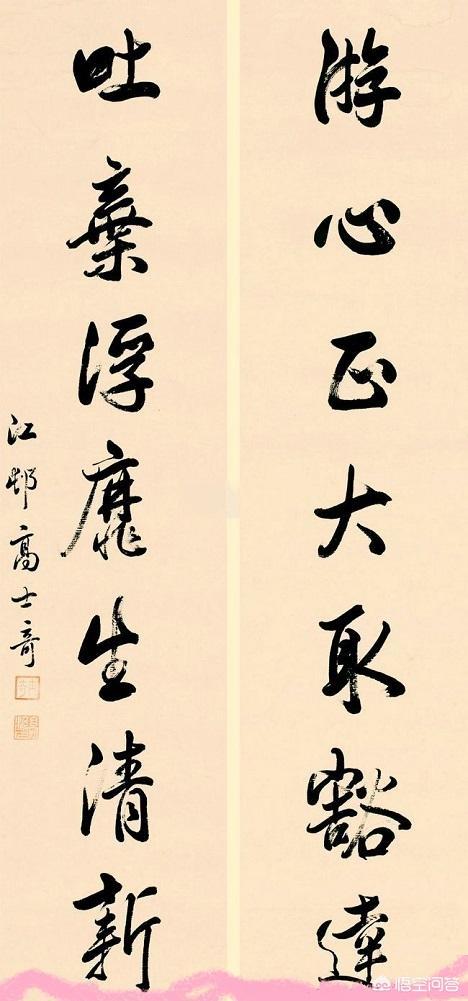 游心正大取豁達
吐棄浮靡生清新
江邨高士奇
悟空问答